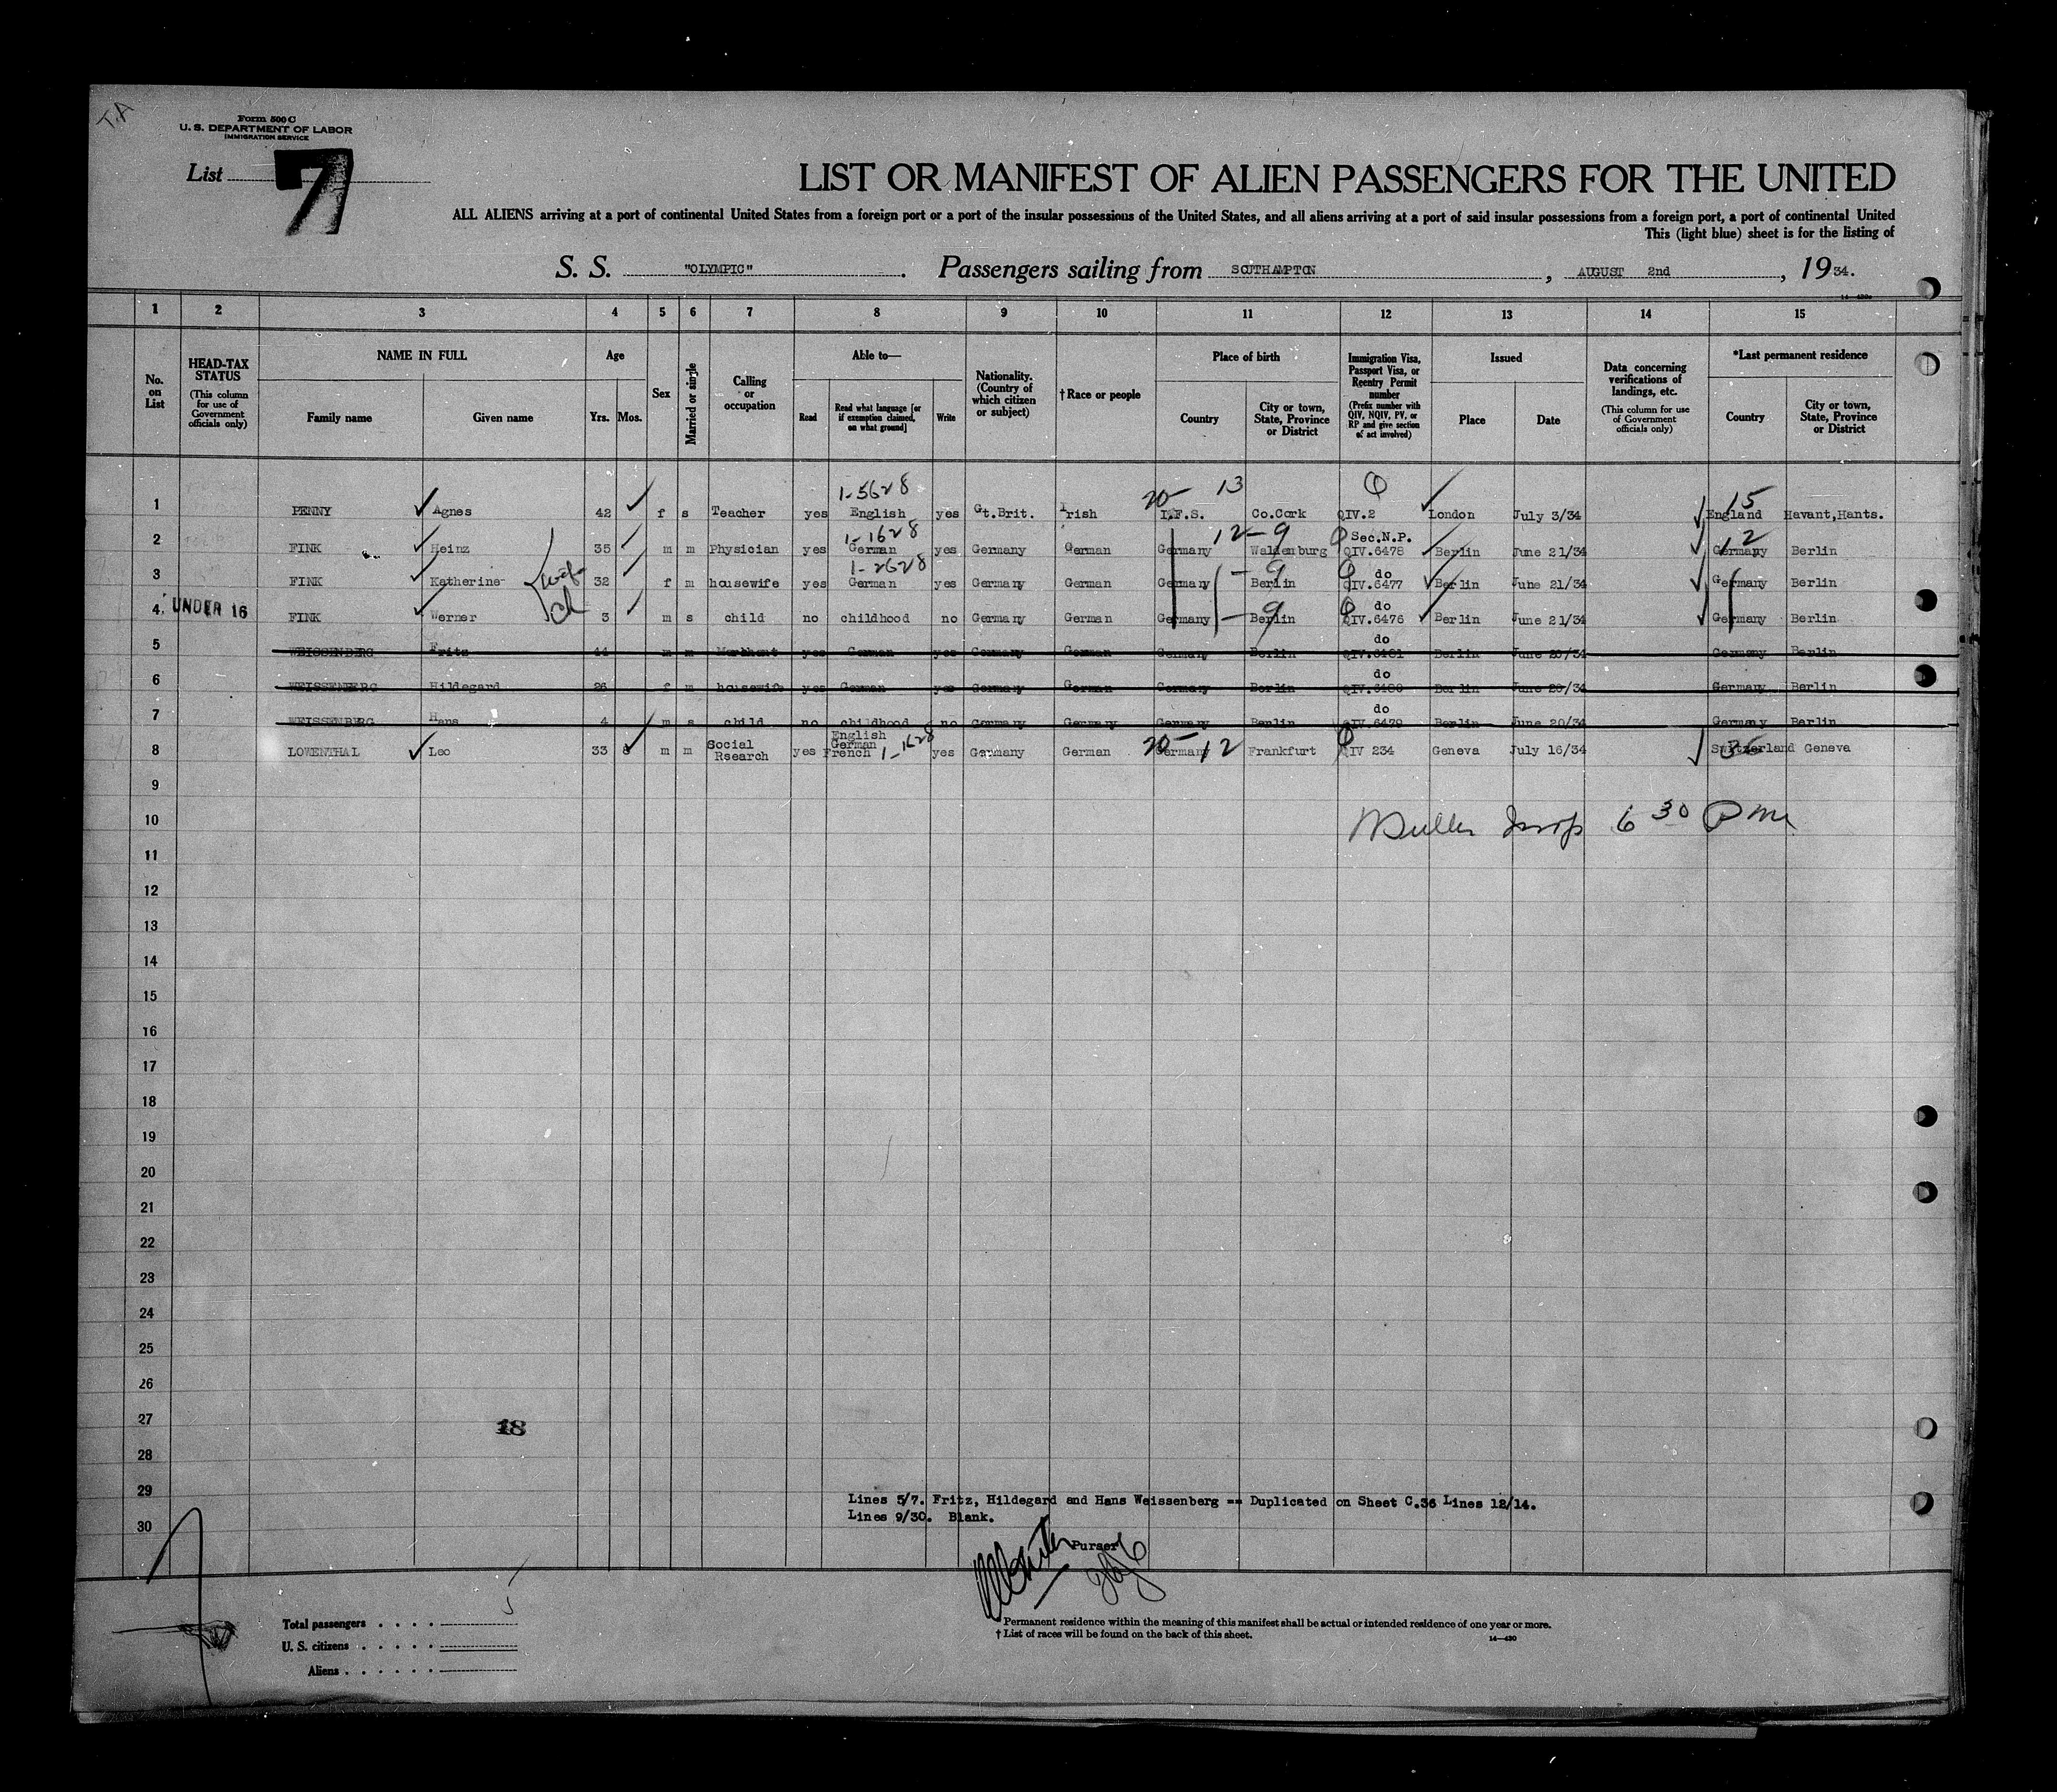 T.A
Form 500 C
U. S. DEPARTMENT OF LABOR
IMMIGRATION SERVICE
List 7
LIST OR MANIFEST OF ALIEN PASSENGERS FOR THE UNITED
ALL ALIENS arriving at a port of continental United States from a foreign port or a port of the insular possessions of the United States, and all aliens arriving at a port of said insular possessions from a foreign port, a port of continental United
This (light blue) sheet is for the listing of
S. S. "OLYMPIC". Passengers sailing from SOUTHAMPTON, AUGUST 2nd, 1934.
14—430a
1 2 3 4 5 6 7 8 9 10 11 12 13 14 15
No. on List
HEAD-TAX STATUS
(This column for use of Government officials only)
NAME IN FULL
Family name Given name
Age
Yrs. Mos.
Sex
Married or single
Calling or occupation
Able to—
Read Read what language [or if exemption claimed, on what ground] Write
Nationality. (Country of which citizen or subject)
† Race or people
Place of birth
Country City or town, State, Province or District
Immigration Visa, Passport Visa, or Reentry Permit number
(Prefix number with QIV, NQIV, PV, or RP and give section of act involved)
Issued
Place Date
Data concerning verifications of landings, etc.
(This column for use of Government officials only)
*Last permanent residence
Country City or town, State, Province or District
1-5628 20- 13 15
1 PENNY Agnes 42 f s Teacher yes English yes Gt.Brit. Irish I.F.S. Co.Cork QIV.2 London July 3/34 England Havant,Hants.
1-1628 12-9 Sec.N.P. 12
2 FINK Heinz 35 m m Physician yes German yes Germany German Germany Waldenburg QIV.6478 Berlin June 21/34 Germany Berlin
wife 1-2628 - 9 do
3 FINK Katherine 32 f m housewife yes German yes Germany German Germany Berlin QIV.6477 Berlin June 21/34 Germany Berlin
ch - 9 do
4 UNDER 16 FINK Werner 3 m s child no childhood no Germany German Germany Berlin QIV.6476 Berlin June 21/34 Germany Berlin
do
5 WEISSENBERG Fritz 44 m m Merchant yes German yes Germany German Germany Berlin QIV.6481 Berlin June 20/34 Germany Berlin
do
6 WEISSENBERG Hildegard 26 f m housewife yes German yes Germany German Germany Berlin QIV.6480 Berlin June 20/34 Germany Berlin
do
7 WEISSENBERG Hans 4 m s child no childhood no Germany Germany Germany Berlin QIV.6479 Berlin June 20/34 Germany Berlin
8 LOWENTHAL Leo 33 8 m m Social Rsearch yes English German French 1-1628 yes Germany German 20- Germany 12 Frankfurt QIV 234 Geneva July 16/34 Switzerland Geneva
9
10 Insp 6 30 PM
11
12
13
14
15
16
17
18
19
20
21
22
23
24
25
26
27 18
28
29 Lines 5/7. Fritz, Hildegard and Hans Weissenberg == Duplicated on Sheet C.36 Lines 12/14.
Lines 9/30. Blank.
30
Purser
Total passengers . . . . 5
U. S. citizens . . . . .
Aliens . . . . . .
* Permanent residence within the meaning of this manifest shall be actual or intended residence of one year or more.
† List of races will be found on the back of this sheet.
14—430